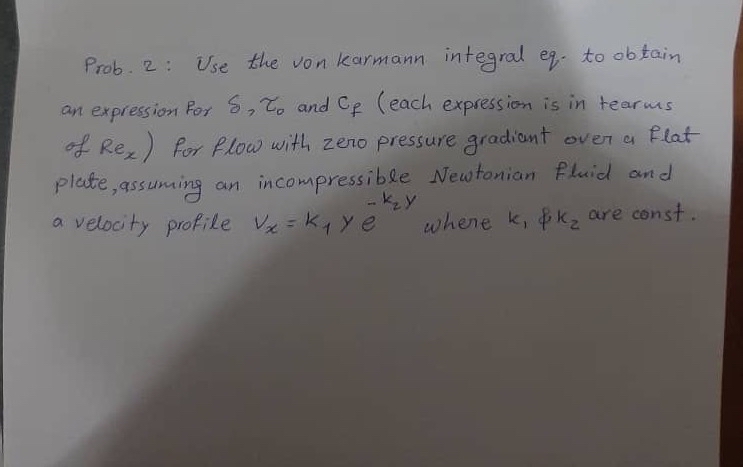 Prob. 2 : Use the von karmann integral eq. to obtain
an expression for δ, τ₀ and Cf (each expression is in tearms
of Rex) for flow with zero pressure gradiant over a flat
plate, assuming an incompressible Newtonian fluid and
a velocity profile Vx = k₁ y e^(-k₂y) where k₁ & k₂ are const.